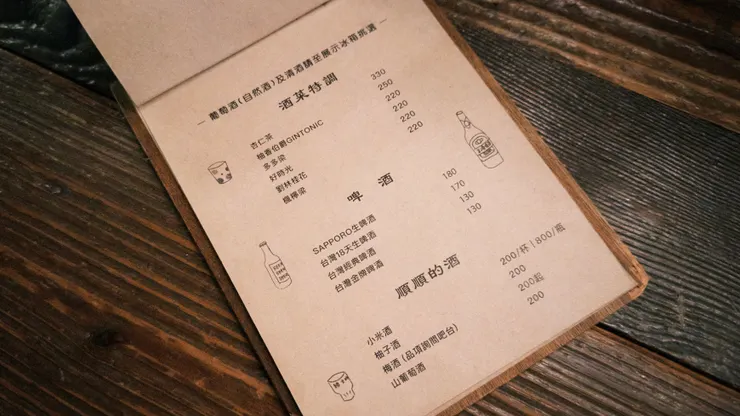 — 葡萄酒(自然酒)及清酒請至展示冰箱挑選 —
酒菜特調
杏仁茶 330
柚香伯爵GINTONIC 250
多多梁 220
好時光 220
劉林桂花 220
飄檸梁 220
啤酒
SAPPORO生啤酒 180
台灣18天生啤酒 170
台灣經典啤酒 130
台灣金牌啤酒 130
順順的酒
小米酒 200/杯|800/瓶
柚子酒 200
梅酒 (品項詢問吧台) 200起
山葡萄酒 200